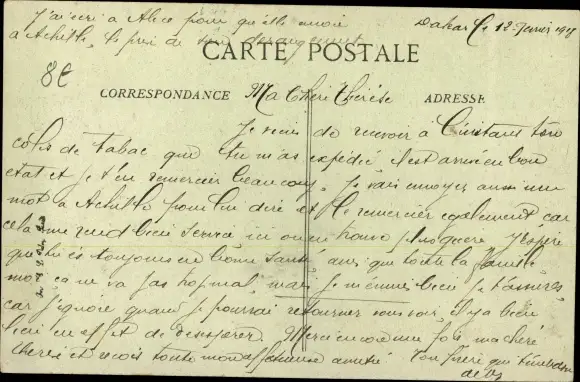 J'ai écri à Alice pour qu'elle envoie
à Achille, le prix de son dérangement
Dakar le 12 Janvier 1918
CARTE POSTALE
8€
CORRESPONDANCE Ma Chère Thérèse ADRESSE
Je viens de recevoir à l'instant ton
colis de tabac que tu m'as expédié il est arrivé en bon
état et je t'en remercie beaucoup. Je vais envoyer aussi un
mot à Achille pour lui dire et le remercier également car
cela me rend bien service ici on en trouve plus guère J'espère
que tu es toujours en bonne santé ainsi que toute la famille
moi ça ne va pas trop mal, mais je m'ennuie bien je t'assure,
car j'ignore quand je pourrai retourner vous voir, il y a bien
lieu en effet de désespérer. Merci encore une fois ma chère
Thérèse et reçois toute mon affectueuse amitié Ton frère qui